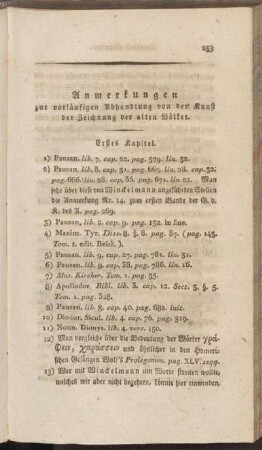 253
Anmerkungen
zur vorläufigen Abhandlung von der Kunst
der Zeichnung der alten Völker.
Erstes Kapitel.
1) Pausan. lib. 7. cap. 22. pag. 579. lin. 32.
2) Pausan. lib. 8. cap. 31. pag. 665. lin. 28. cap. 32.
pag. 666. lin. 28. cap. 35. pag. 671. lin. 22. Man
sehe über diese von Winckelmann angeführten Stellen
die Anmerkung Nr. 14. zum ersten Bande der G. d.
K. des A. pag. 269.
3) Pausan. lib. 2. cap. 9. pag. 132. in fine.
4) Maxim. Tyr. Diss. 8. §. 8. pag. 87. (pag. 143.
Tom. 1. edit. Reisk.).
5) Pausan. lib. 9. cap. 27. pag. 761. lin. 31.
6) Pausan. lib. 9. cap. 38. pag. 786. lin. 16.
7) Mus. Kircher. Tom. 1. pag. 35.
8) Apollodor. Bibl. lib. 3. cap. 12. Sect. 3. §. 5.
Tom. 1. pag. 328.
9) Pausan. lib. 8. cap. 40. pag. 682. init.
10) Diodor. Sicul. lib. 4. cap. 76. pag. 319.
11) Nonn. Dionys. lib. 4. vers. 150.
12) Man vergleiche über die Bedeutung der Wörter γρά-
φειν, χαράσσειν und ähnlicher in den Homeri-
schen Gesängen Wolf's Prolegomen. pag. XLV. sqq.
13) Wer mit Winckelmann um Worte streiten wollte,
welches wir aber nicht begehren, könnte hier einwenden,